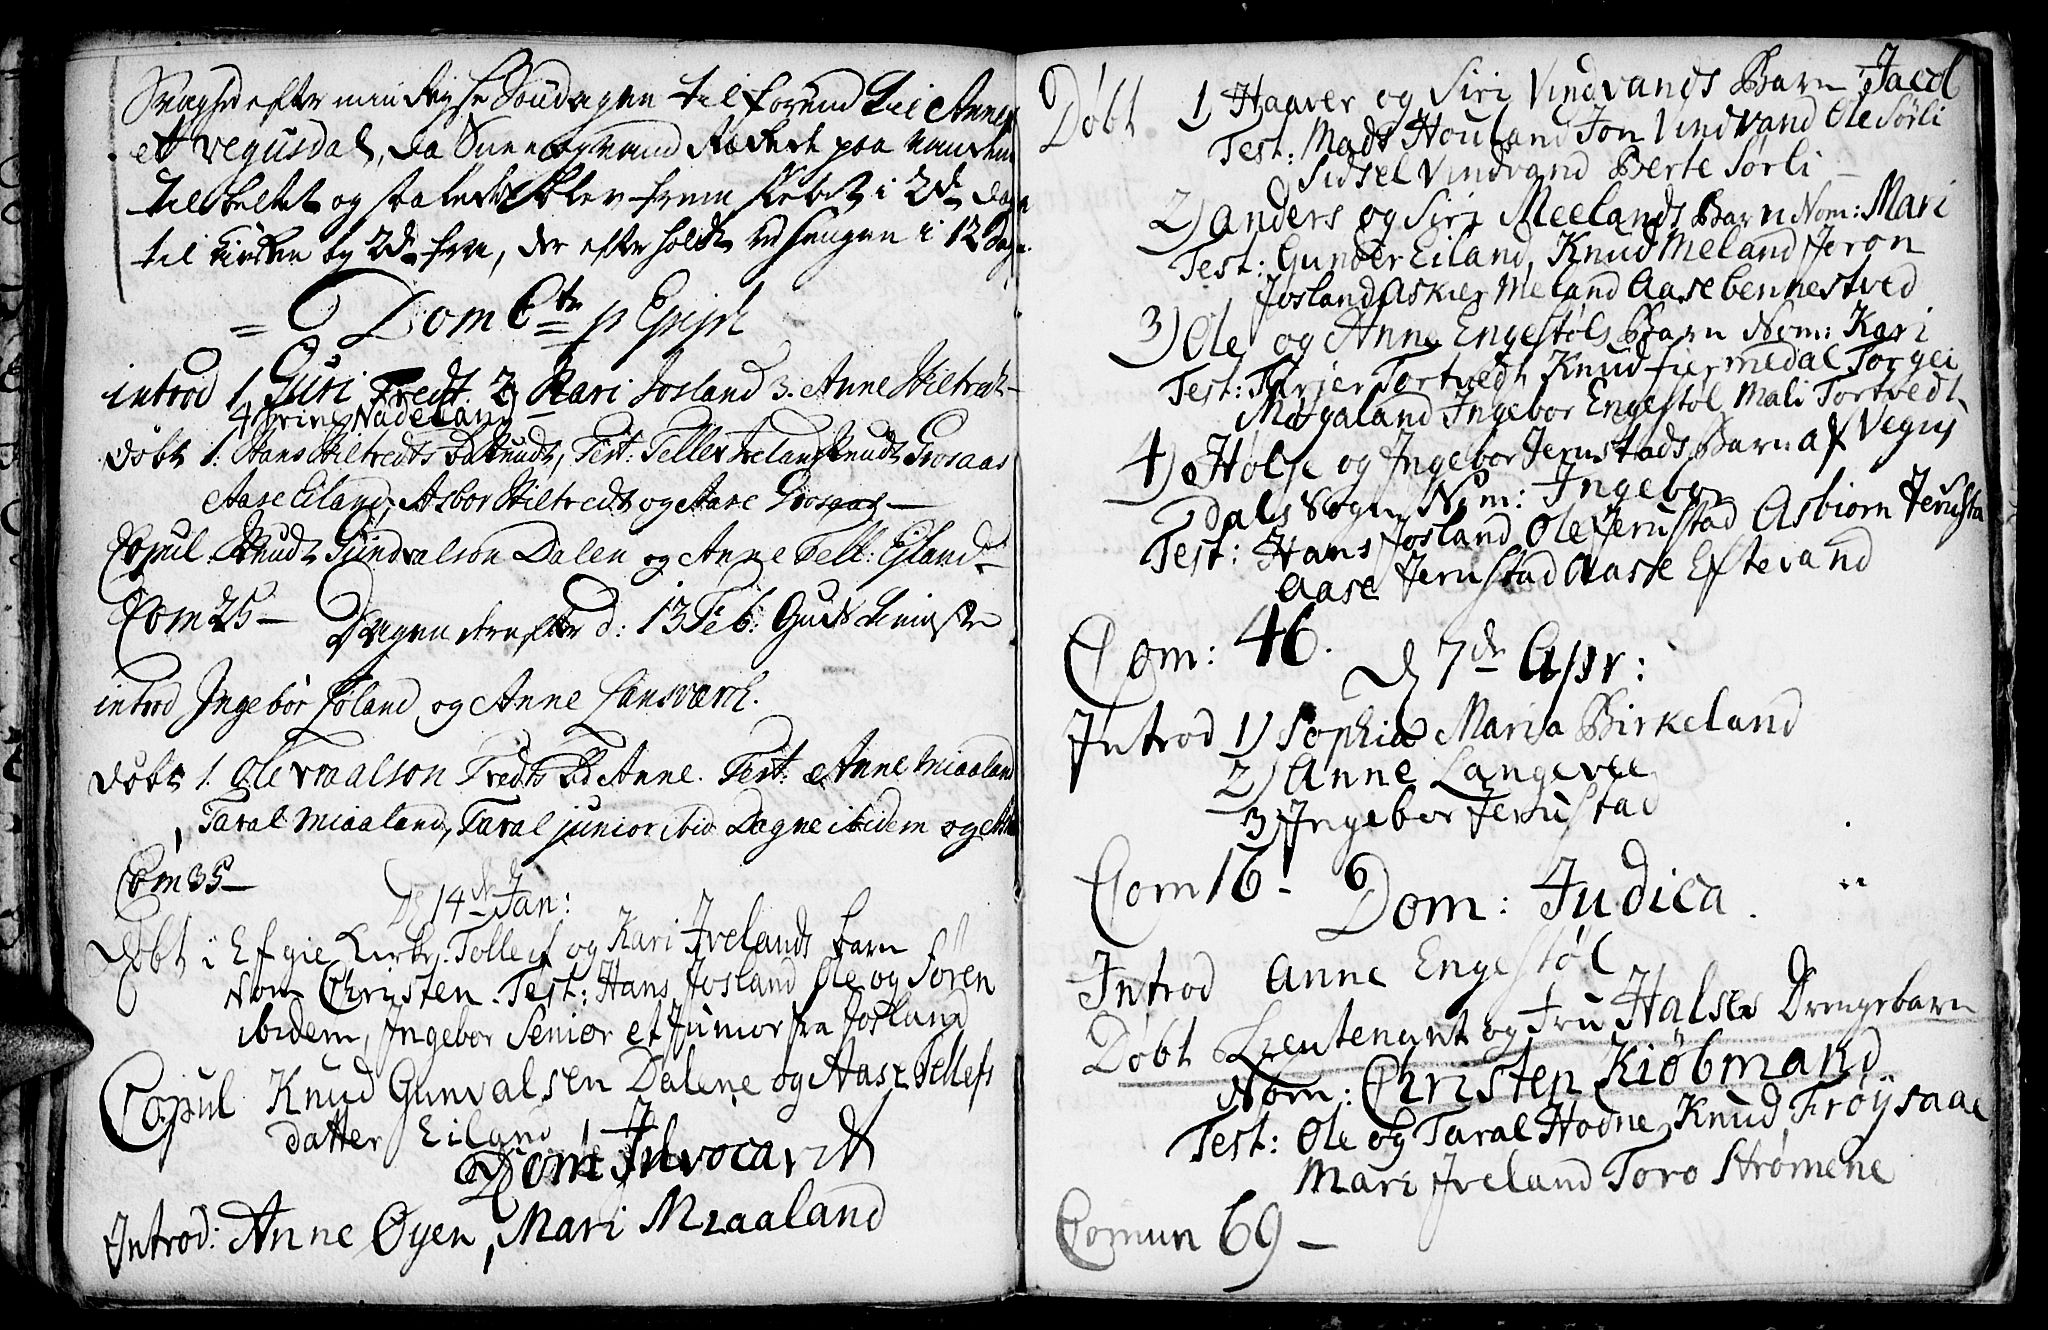 til
et Vegusdal, da
til og frem i 2de dage
til og 2de fra, der efter holdt i 12 Dage.
Dom 6te p Epiph
introd 1. Guri Tredt. 2 Kari Josland 3. Anne Hiltredt
4 Trine Nadeland
døbt 1. Hans Hiltredts Test: Tellev Ireland Knudt Grosaas
Aase Eiland, Asbor Hiltredt og Aase Grosaas
Copul. Knudt Gundvalson Dalen og Anne Tell: Ejland
Com 25 —
Dagen derefter d: 13 Feb:
introd Ingebor Føland og Anne Lansværk.
døbt 1. Ole Traalson Tredts Anne. Test: Anne Miaaland
Taral Miaaland, Taral junior ibid Dagne ibidem og
Com 35 —
D 14de Jan:
Døbt i Efgie Kirke. Tollef og Kari Irelands barn
Nom Christen. Test: Hans Josland Ole og Sören
ibidem, Ingebor Senior et Junior fra Josland
Copul Knud Gunvalsen Dalene og Aase Tellefs
datter Eiland
Dom Invocavit
Introd: Anne Øyen, Mari Miaaland
Døbt 1) Haaver og Siri Vindvands Barn Jacob
Test: Mads Houland Jon Vindvand Ole Sørli
Sidsel Vindvand Berte Sørli —
2) Anders og Siri Meelands Barn Nom: Mari
Test: Gunder Eiland, Knud Meland Jeron
Josland Askier Meland Aase bennestved
3) Ole og Anne Engestøls Barn Nom: Kari
Test: Tarjer Tortvedt Knud fiermedal Torgei
Mogaland Ingebor Engestøl Mali Tortvedt
4) Holje og Ingebor Jerustads Barn af Vegus
dals Sogn Nom: Ingebor
Test: Hans Josland Ole Jerustad Asbiorn Jerusta
Aase Jerustad Aasse Eftevand
Com: 46.
D 7de Apr:
Introd 1) Sophia Maria Birkeland
2) Anne Langevee
3) Ingebor Jerustad
Com 16 —
Dom: Judica.
Introd Anne Engestøl
Døbt Lieutenant og Fru Halses Drengebarn
Nom: Christen Kiøbmand
Test: Ole og Taral Hodne, Knud Frøysaae
Mari Jreland Toro Strømene
Comun 69 —